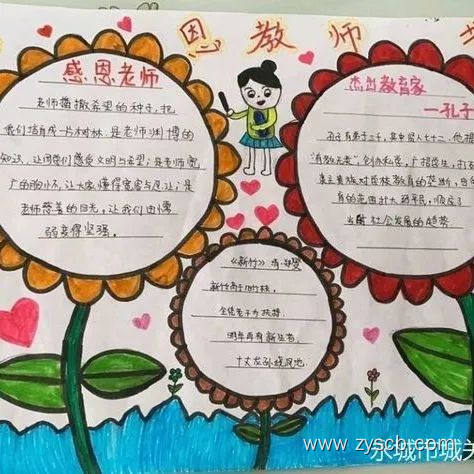 恩教师节
感恩老师
老师播撒希望的种子,把
我们培育成一片树林.是老师渊博的
知识,让同学们感受文明与希望;是老师宽
广的胸怀,让大家懂得宽容与忍让;是
老师慈善的目光,让我们由懦
弱变得坚强。
杰出教育家
一孔
孔子有弟子三千,其中贤人七十二,他提
"有教无类",创办私学,广招学生,打
隶主贵族对学校教育的垄断,
育的范围扩大到平民,顺应了
当时社会发展的趋势
《新竹》清·郑燮
新竹高于旧竹枝,
全凭老干为扶持.
明年再有新生者
十丈龙孙绕凤池.
www.zyscb.com
永城市城关